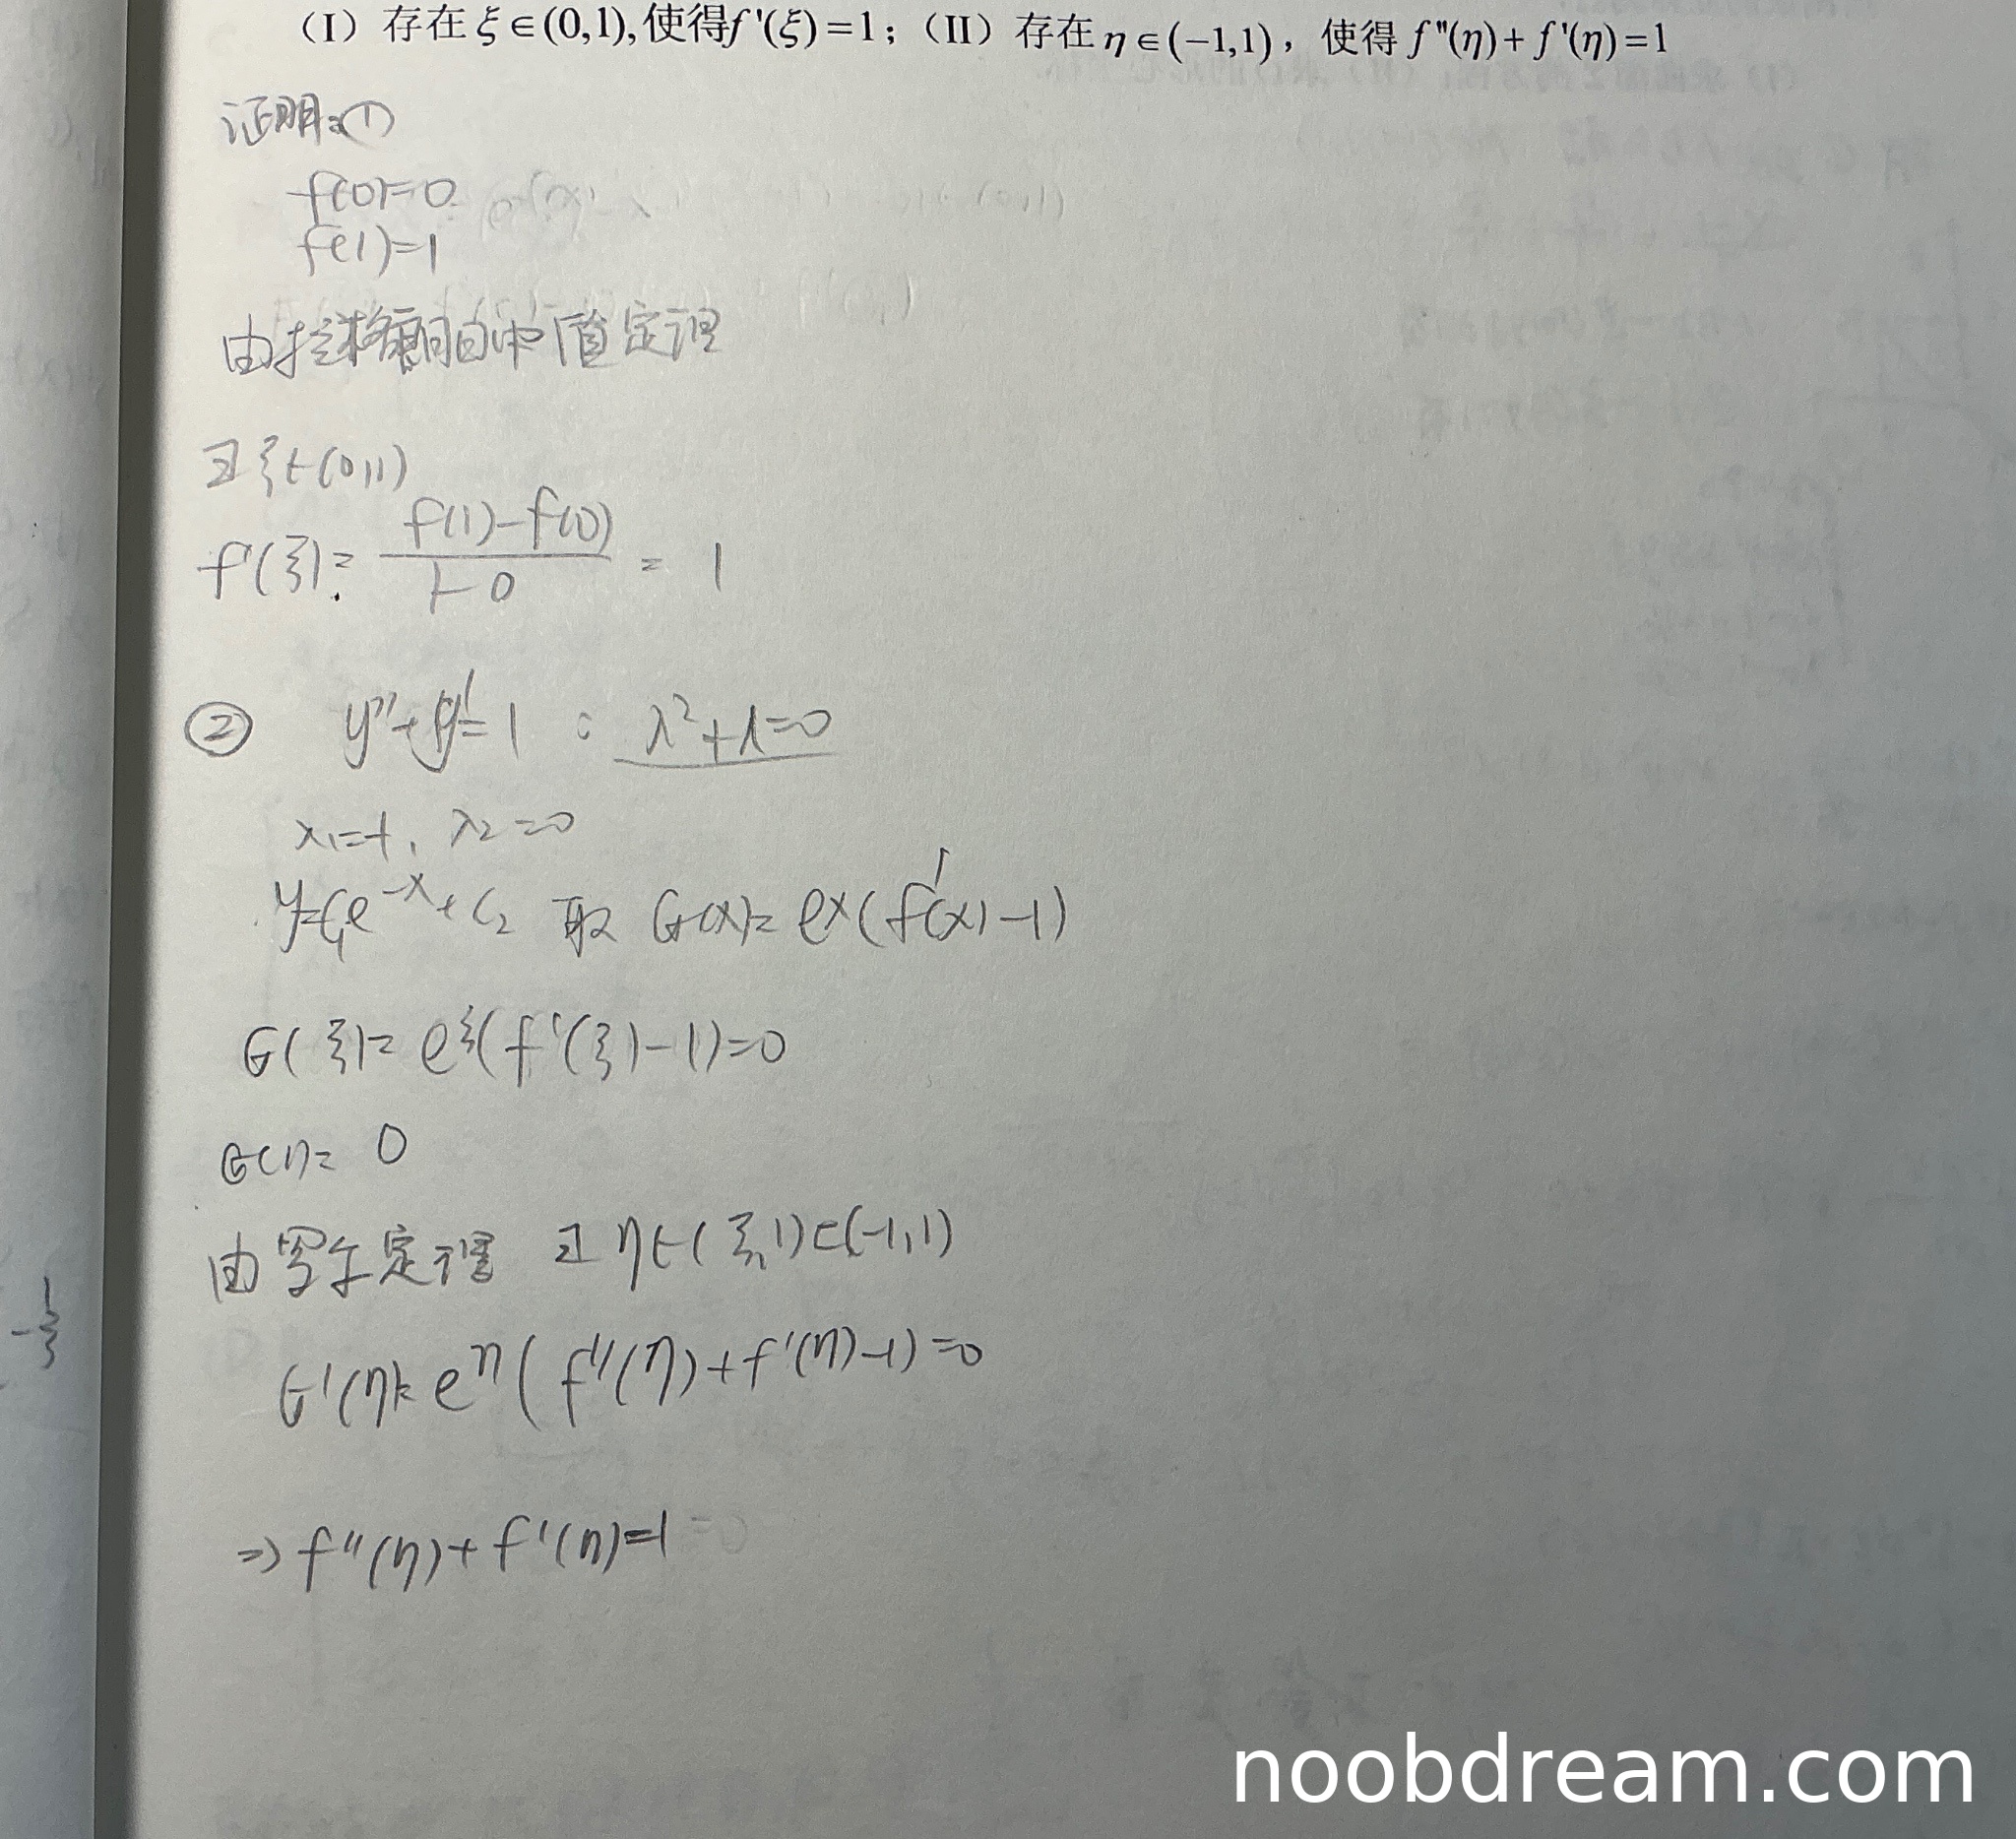 （I）存在 ξ∈(0,1),使得f'(ξ)=1；（II）存在 η∈(−1,1)，使得 f"(η)+f'(η)=1
证明:①
f(0)=0
f(1)=1
由拉格朗日中值定理
∃ξ∈(0,1)
f'(ξ)= \frac{f(1)-f(0)}{1-0} = 1
② y''+y'=1 : λ²+λ=0
λ₁=-1, λ₂=0
y=C₁e^{-x}+C₂ 取 G(x)= e^x(f'(x)-1)
G(ξ)= e^ξ(f'(ξ)-1)=0
G(1)= 0
由罗尔定理 ∃η∈(ξ,1)⊂(-1,1)
G'(η)= e^η(f''(η)+f'(η)-1)=0
⇒f''(η)+f'(η)=1
noobdream.com